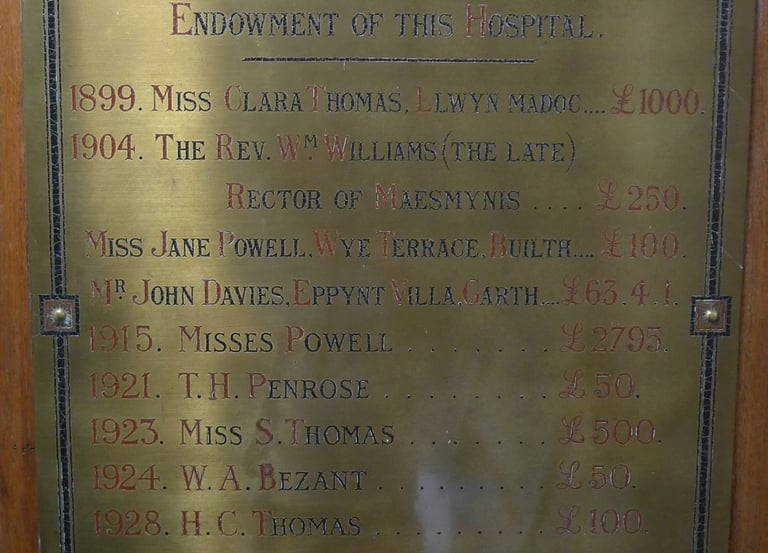 ENDOWMENT OF THIS HOSPITAL.
1899. MISS CLARA THOMAS, LLWYN MADOC.... £1000.
1904. THE REV. WM. WILLIAMS (THE LATE)
RECTOR OF MAESMYNIS .... £250.
MISS JANE POWELL, WYE TERRACE, BUILTH.... £100.
MR JOHN DAVIES, EPPYNT VILLA, GARTH.... £63.4.1.
1915. MISSES POWELL ....... £2795.
1921. T. H. PENROSE ......... £50.
1923. MISS S. THOMAS ....... £500.
1924. W. A. BEZANT ......... £50.
1928. H. C. THOMAS ......... £100.